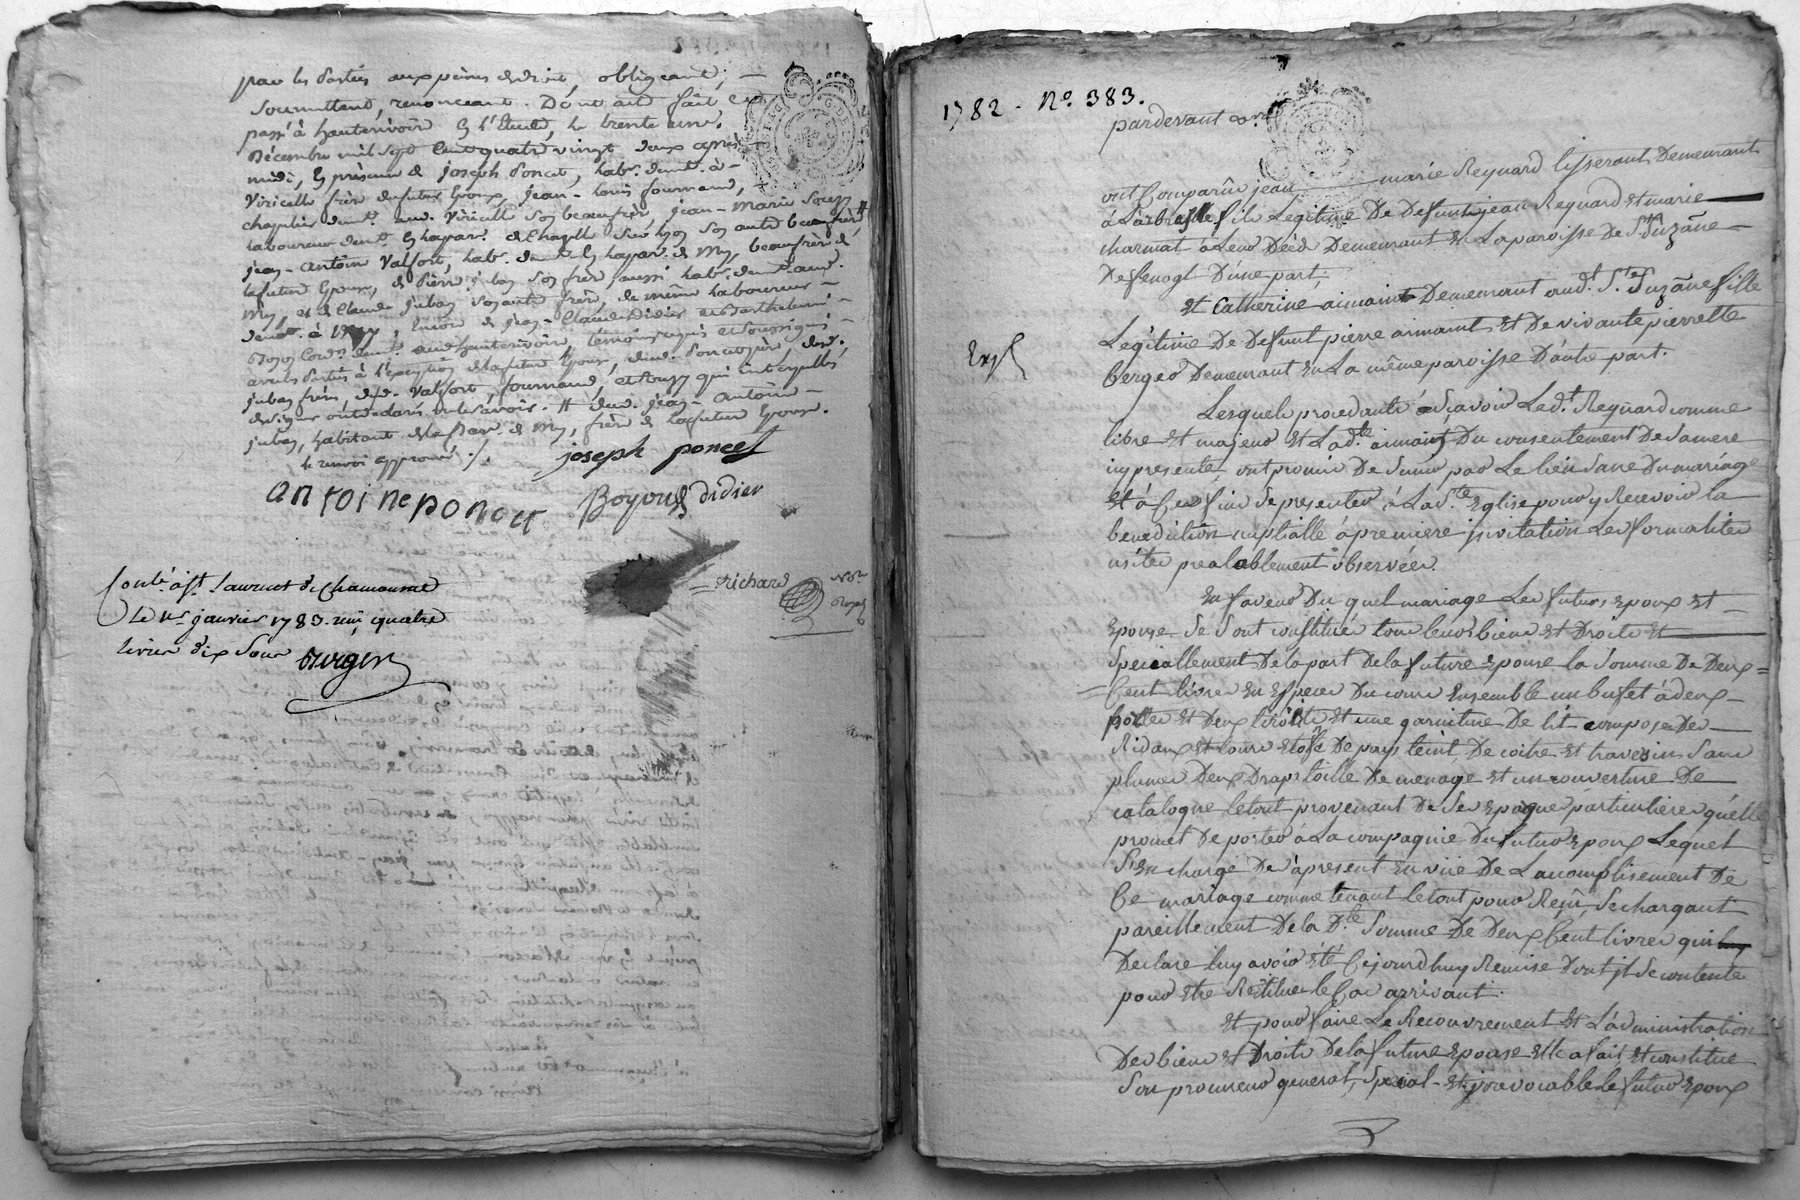 par les parties aux peines de droit, obligeant,
soumettant, renonceant. Dont acte fait et
passé à hauterivoire en l'Etude, le trente une
Décembre mil sept cent quatre vingt deux après
midi, en présence de joseph Poncet, hab. demt. à
Viricelle frère du futur Epoux, jean-Louis fournand,
chapelier demt. aud. Viricelle son beaufrère, jean-Marie Souzy
laboureur demt. en la par. de son autre beaufrère
jean-Antoine Valfort, hab. demt. en la par. de beaufrère de
la future Epouse, de Pierre jubaz son frère aussi hab. demt. aud.
et de Claude jubaz son autre frère, de même laboureur
demt. à encore de jean-Claude Didier et Barthelemi
demt. aud. hauterivoire, témoins requis et soussignés
avec les parties à l'exception de la future Epouse,
jubaz frères, desd. Valfort, fournand, et Souzy qui interpellés
de signer ont déclaré ne le savoir. # dud. jean-Antoine
jubaz, habitant de la par. de frère de la future Epouse.
le renvoi approuvé ./.
joseph poncet
antoine poncet Boyoud didier
richard
Contr. à St. Laurent de Chamousset
Le janvier 1783. reçu quatre
livres dix sous
1782 - No. 383.
pardevant
ont Comparû jean marie Reynard tisserant Demeurant
à Larbresle fils Legitime De Defunts jean Reynard et marie
charmat à Leur Décès Demeurant en La paroisse De Ste. Suzâne
D'une part;
et Catherine aimaint Demeurant aud. Ste. Suzâne fille
Legitime De Defunt pierre aimaint et De vivante pierrette
berger Demeurant en La même paroisse D'autre part.
Exp
Lesquels procedants à sçavoir Led.t Reynard comme
libre et majeur et Lad.te aimaint Du consentement De sa mere
icy presente, ont promis De s'unir par Le lien Sacré Du mariage
et à Cet fin se presenter à Lad.te Eglise pour y Recevoir la
benediction nuptialle à premiere jnvitation Les formalites
usites prealablement observées.
En faveur Du quel mariage Les futurs epoux et
Epouse Se Sont constitués tous leurs biens et Droits et
Speciallement De la part De la future epouse la Somme De Deux
Cent livres en Especes Du cours Ensemble un bufet à deux
portes et Deux tiroirs et une garniture De lit composée De
Ridaux et tours etoffe De pays teint, De coitre et traversin Sans
plumes Deux Draps toille De menage et un couverture De
catalogne le tout provenant De Ses epargne particulieres qu'elle
promet De porter à La compagnie Du futur Epoux Lequel
S'En charge De àpresent en vüe De L'accomplissement De
Ce mariage comme tenant le tout pour Reçu, Se chargant
pareillement De la Dte. Somme De Deux Cent livres qu'il
Declare luy avoir été Cejourd'huy Remise Dont jl Se contente
pour être Restituer le Cas arrivant.
et pour faire Le Recouvrement et L'administration
Des biens et Droits De la future Epouse elle a fait et constitué
Son procureur general, Special et jrrevocable le futur epoux